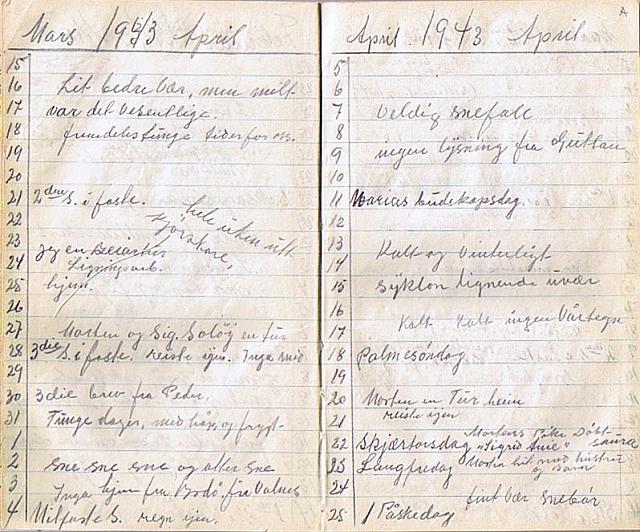 Mars 1943 April
15
16 Lit bedre vær, men mildt
17 var det vesentlige.
18 fremdeles tunge tider for oss.
19
20
21 2den S. i faste.
22 hele uken ut
23 kjørskare,
24 jeg en
25 hjem.
26
27 Morten og Sig. Solöy en tur
28 3die S. i faste. reiste igjen. Inga med
29
30 3die brev fra Peder.
31 Tunge dager, med håp og frygt
1
2 sne sne sne og atter sne
3 Inga hjem fra Bodö, fra Valnes
4 Midfaste S. regn igjen.
April 1943 April
A
5
6
7 Veldig snefall
8
9 ingen lysning fra Guttan
10
11 Marias budskapsdag.
12
13
14 Kalt og vinterligt
15 Syklon lignende uvær
16
17 Kalt Kalt ingen Vårtegn
18 Palmesöndag
19
20 Morten en Tur heim
21 reiste igjen
22 Skjærtorsdag Mortens Pike Döbt "Sigrid Anne"
23 Langfredag Morten hit med hustru og barn
24
25 1 Påskedag fint Vær Snebar